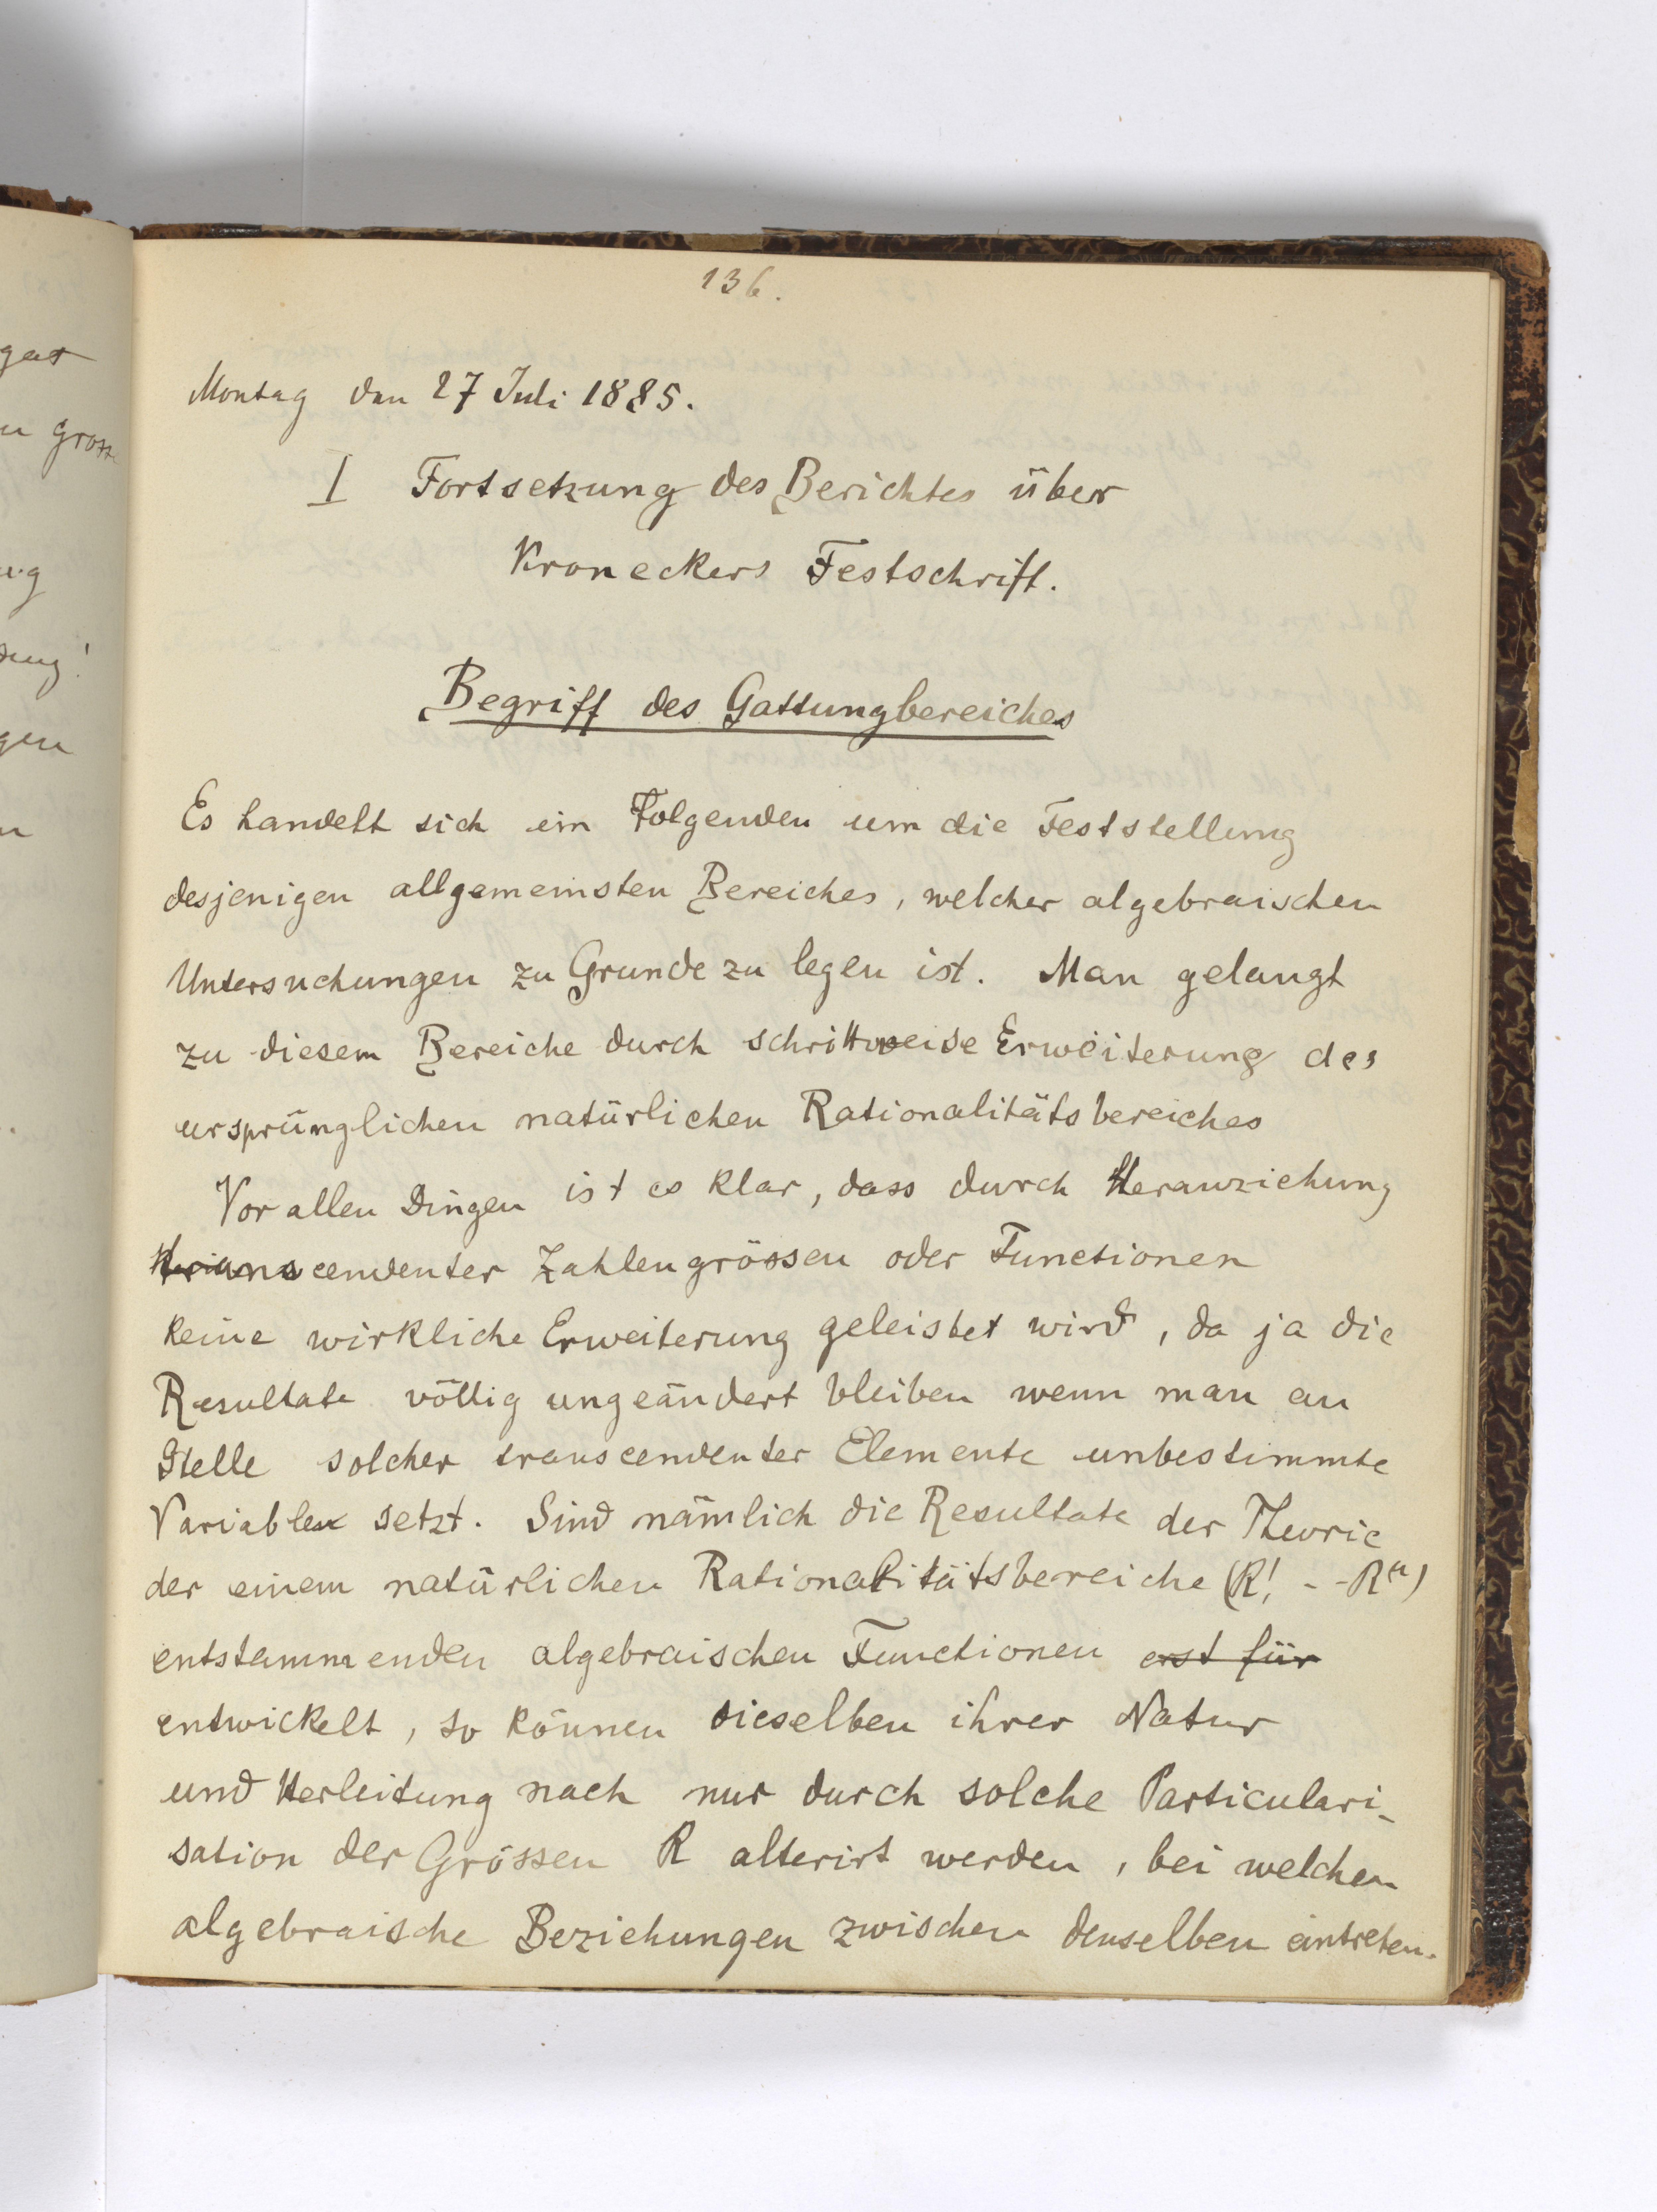 136.
Montag den 27 Juli 1885.
I Fortsetzung des Berichtes über
Kroneckers Festschrift.
Begriff des Gattungbereiches
Es handelt sich im Folgenden um die Feststellung
desjenigen allgemeinsten Bereiches, welcher algebraischen
Untersuchungen zu Grunde zu legen ist. Man gelangt
zu diesem Bereiche durch schrittweise Erweiterung des
ursprünglichen natürlichen Rationalitätsbereiches
Vor allen Dingen ist es klar, dass durch Heranziehung
transcendenter Zahlengrössen oder Functionen
keine wirkliche Erweiterung geleistet wird, da ja die
Resultate völlig ungeändert bleiben wenn man an
Stelle solcher transcendenter Elemente unbestimmte
Variable setzt. Sind nämlich die Resultate der Theorie
der einem natürlichen Rationalitätsbereiche (R', - - R⁽ⁿ⁾)
entstammenden algebraischen Functionen erst für
entwickelt, so können dieselben ihrer Natur
und Herleitung nach nur durch solche Particulari-
sation der Grössen R alterirt werden, bei welchen
algebraische Beziehungen zwischen denselben eintreten.
gar
n gross
ng
dung!
gen
n